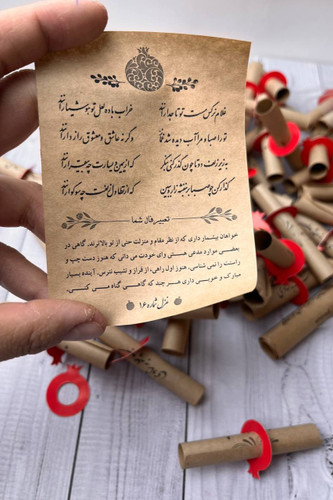 غلام نرگس مست تو تاجدارانند خراب باده لعل تو هوشیارانند
تو را صبا و مرا آب دیده شد غماز وگرنه عاشق و معشوق رازدارانند
به زیر زلف دو تا چون گذر کنی بنگر که از یمین و یسارت چه بیقرارانند
گذار کن چو صبا بر بنفشه زار و ببین که از تطاول زلفت چه سوگوارانند
تعبیر فال شما
خواهان بیشماری داری که از نظر مقام و منزلت حتی از تو بالاترند. گاهی در
بعضی موارد مدعی هستی برای خودت می دانی که هنوز دست چپ و
راستت را نمی شناسی. هنوز اول راهی، از فراز و نشیب نترس. آینده بسیار
مبارک و خوبی داری هر چند که گاهی گناه می کنی.
غزل شماره ۱۶